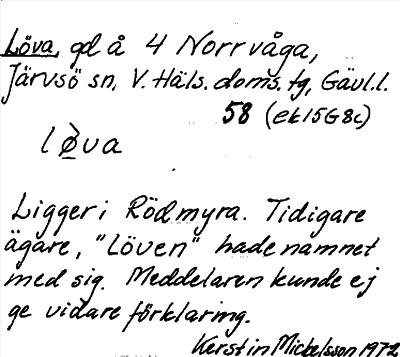 Löva, gd å 4 Norrvåga,
Järvsö sn, V. Häls. doms. tg, Gävl.l.
58 (ek 15G8c)
lø̀va
Ligger i Rödmyra. Tidigare
ägare, "Löven" hade namnet
med sig. Meddelaren kunde ej
ge vidare förklaring.
Kerstin Mickelsson 1972